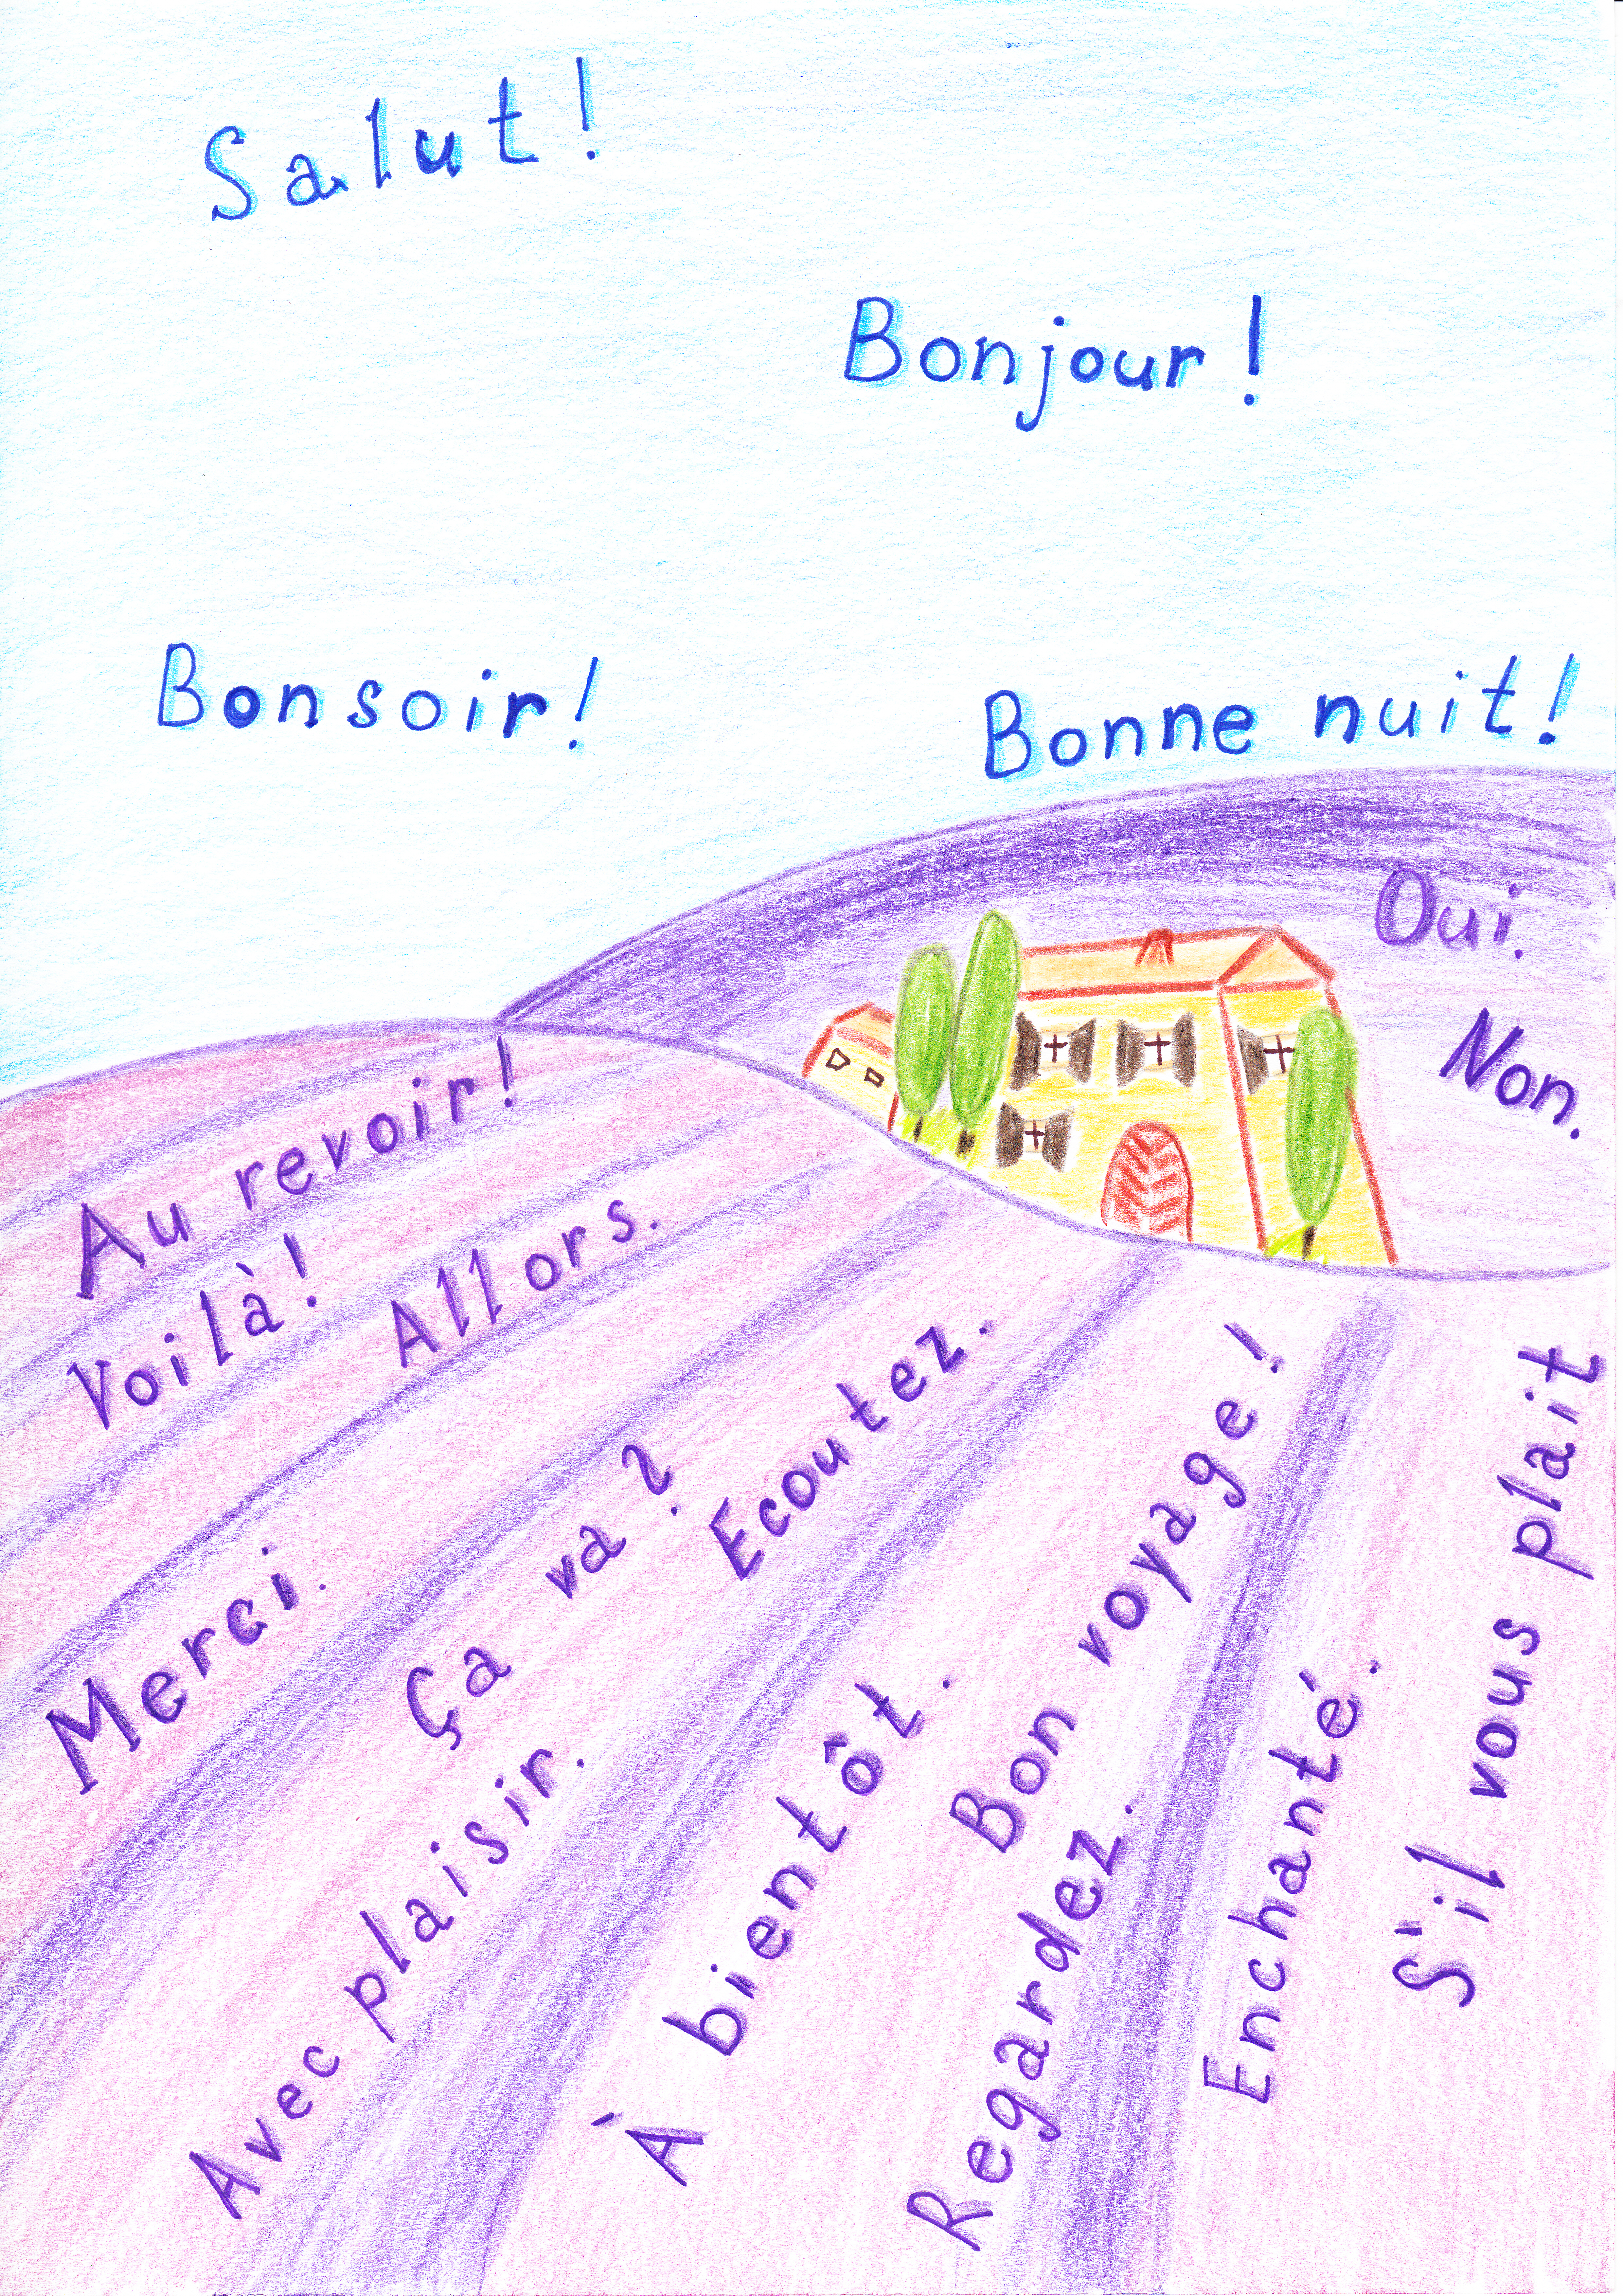 Salut!
Bonjour!
Bonsoir!
Bonne nuit!
Oui.
Non.
Au revoir!
Voilà!
Allors.
Merci.
Ça va?
Ecoutez.
Avec plaisir.
À bientôt.
Bon voyage!
Regardez.
Enchanté.
S'il vous plait